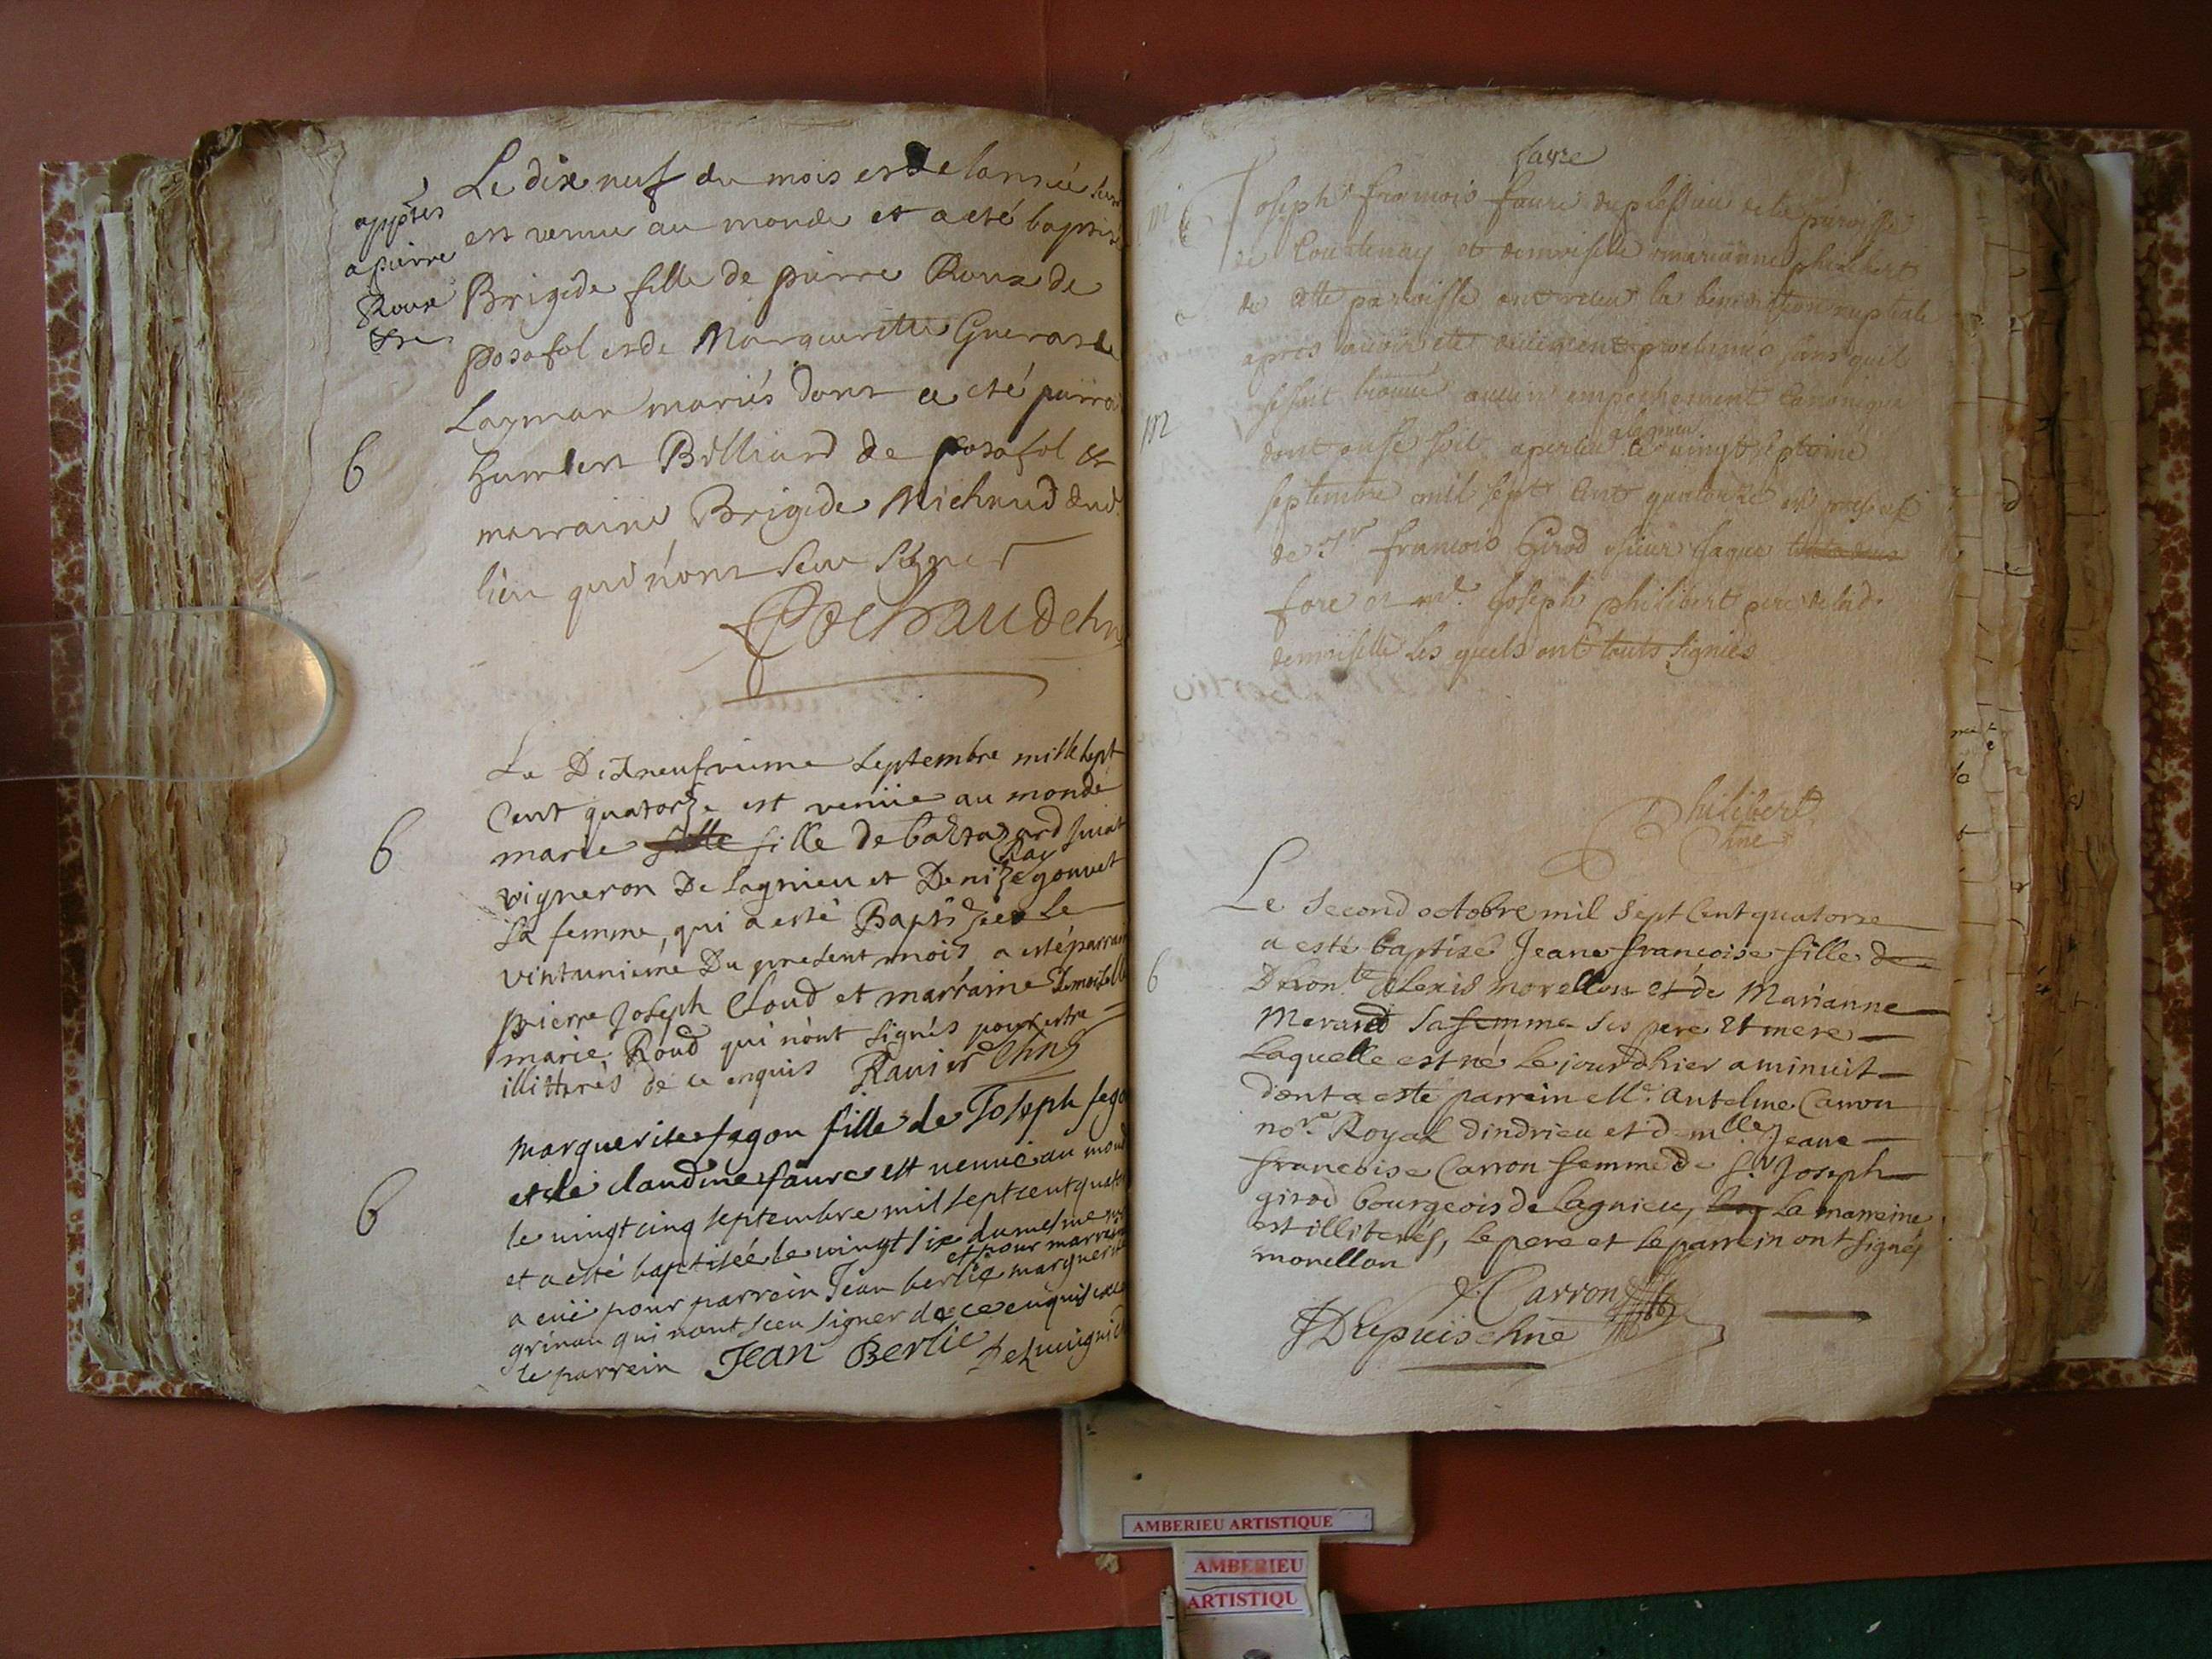 Le dix neuf du mois et de lannée
est venue au monde et a eté baptisé
Brigide fille de pierre Roux de
posafol et de Margueritte Guerar de
Lagman mariés dont a eté
humbert Billiard de posafol et
marraine Brigide Michaud dud.
lieu qui n'ont seu signer
Cochaud
a pierre
Roux
6
Le Dixneufvieme septembre mille sept
Cent quatorze est venüe au monde
marie fille de baltazard
vigneron De lagnieu et Denize gouvet
sa femme, qui a esté Baptizée le
vintunieme Du present mois a esté parrain
pierre Joseph Cloud et marraine Demoiselle
marie Roud qui n'ont signés pour estre
illitterés de ce enquis Ravier
6
marguerite fagon fille de Joseph
et de claudine faure est venue au
le vingt cinq septembre mil sept cent
et a esté baptisée le vingt six du mesme
et pour marraine
a eüe pour parrein Jean berlie
grinan qui n'ont sceu signer de ce enquis
le parrein JEAN BERLIE
6
faure
Joseph francois faure de la paroisse
de Courtenay et demoiselle marianne philibert
de cette paroisse ont receu la benediction nuptiale
apres avoir eté sans quil
se soit trouvé aucun empechement canonique
a lagnieu
dont le vingt septieme
septembre mil sept cent quatorze
de Sr francois Girod
fore et Mr. Joseph philibert pere de lad.
demoiselle les quels ont touts signiés
m
Philibert
Chne
Le second octobre mil sept Cent quatorze
a esté baptisé Jeane francoise fille de
Dhon.te Alexis morellon et de Marianne
Merand sa femme ses pere et mere
Laquelle est né le jourdhier a minuit
dont a esté parrein Mr. Antelme Carron
nor.e Royal dindrieu et dem.lle Jeane
francoise Carron femme de Sr Joseph
girod bourgeois de Lagnieu, la marreine
est illiterés, le pere et le parrein ont signés
morellon
Carron
Dupuis chne
6
AMBERIEU ARTISTIQUE
AMBERIEU
ARTISTIQU